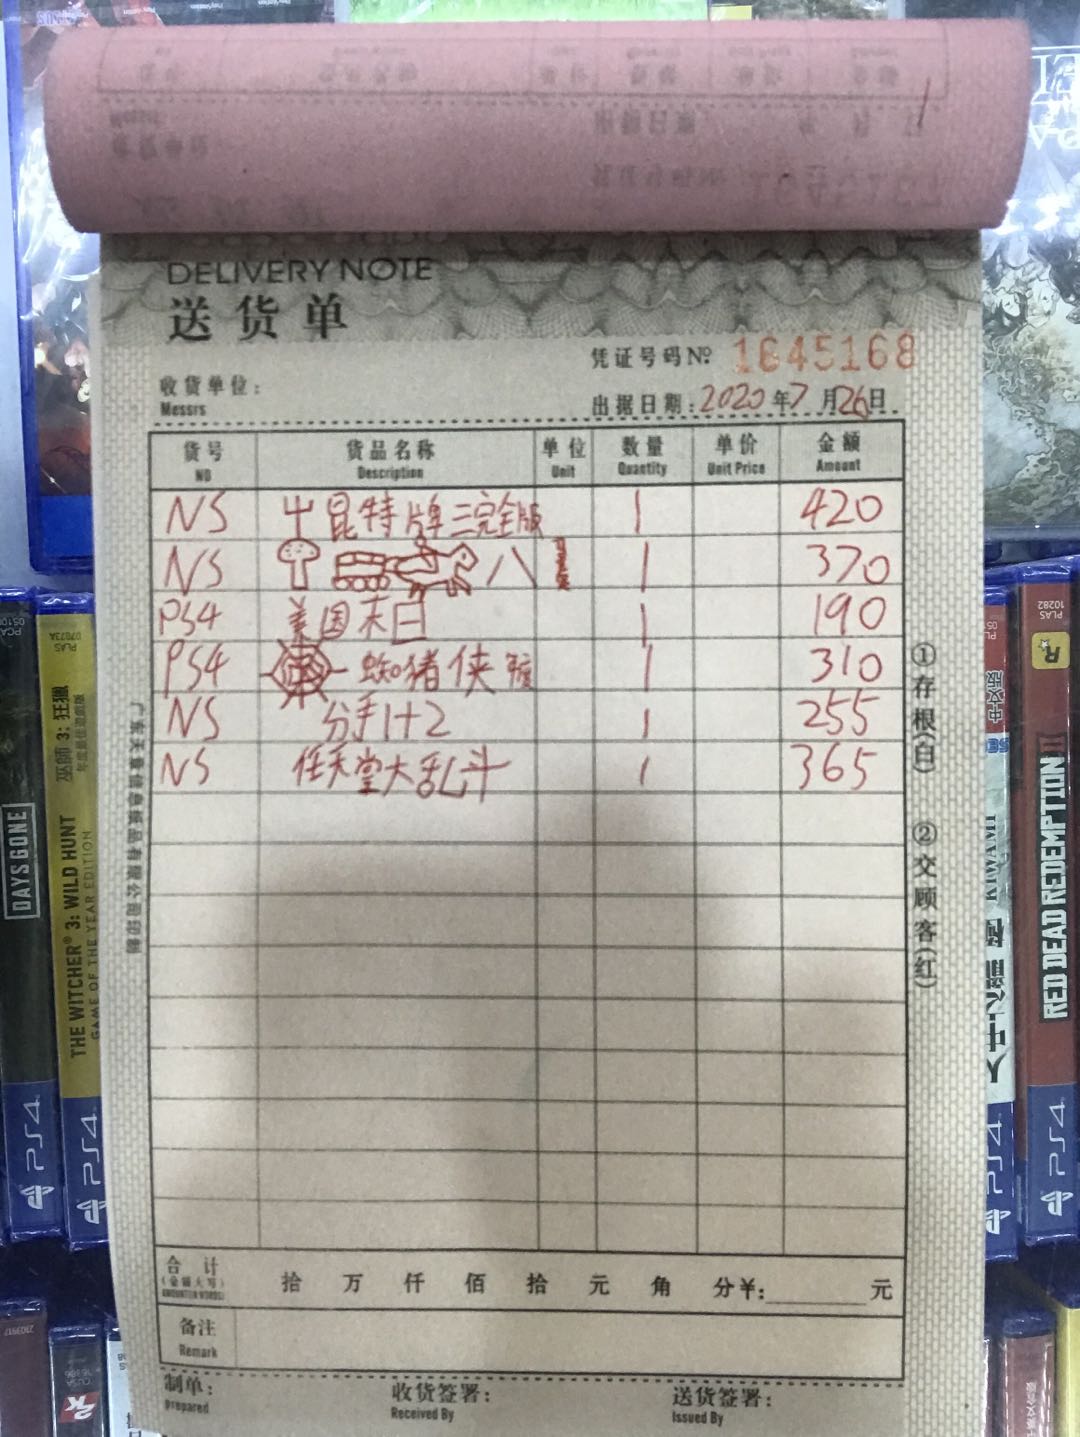 DELIVERY NOTE
送货单
凭证号码№ 1645168
收货单位:
Messrs
出据日期: 2020年7月26日
货号 货品名称 单位 数量 单价 金额
NO Description Unit Quantity Unit Price Amount
NS 昆特牌三完全版 1 420
NS 八 1 370
PS4 美国末日 1 190
PS4 蜘猪侠 1 310
NS 分手1+2 1 255
NS 任天堂大乱斗 1 365
合计
(金额大写)
拾 万 仟 佰 拾 元 角 分 ¥: 元
备注
Remark
制单:
prepared
收货签署:
Received By
送货签署:
Issued By
①存根(白) ②交顾客(红)
DAYS GONE
PS4
巫師 3: 狂獵
年度最佳遊戲版
THE WITCHER 3: WILD HUNT
GAME OF THE YEAR EDITION
PS4
中文版
KIWAMI
PS4
PLAS
10282
R
RED DEAD REDEMPTION II
PS4
2K